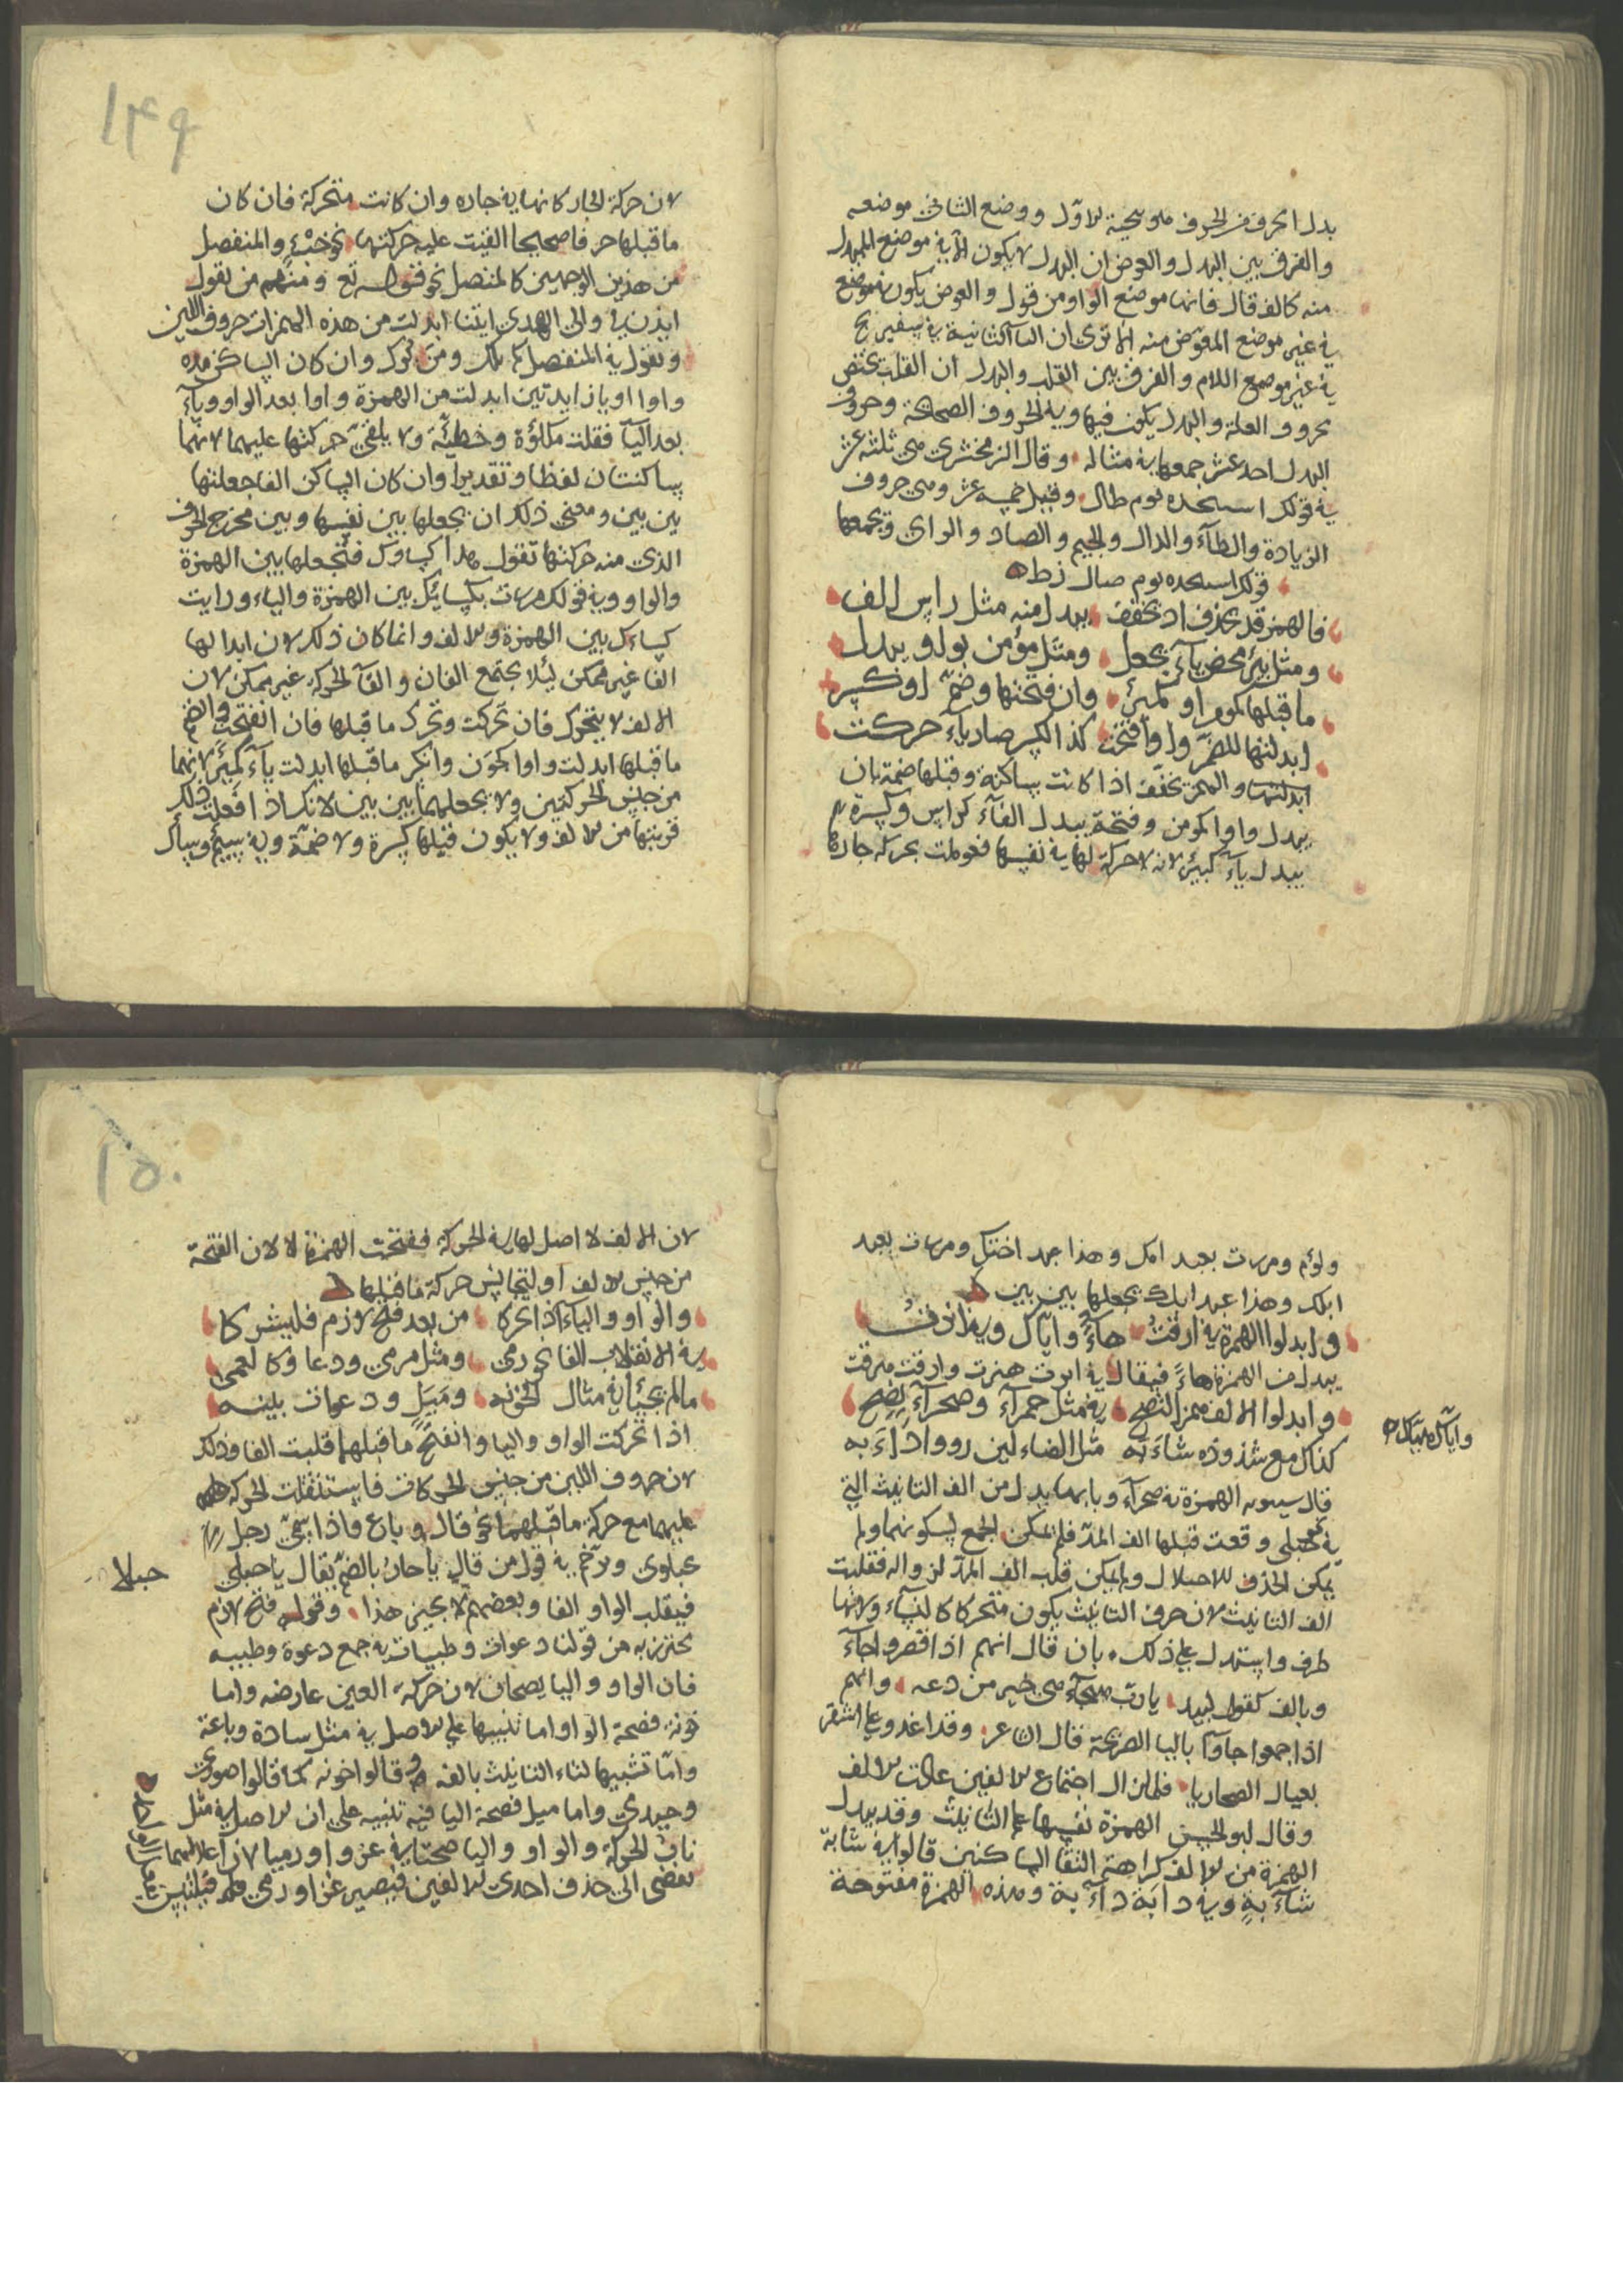 بدل الحرف من الحروف ملوسحية للاول ووضع الثاني موضعه
والفرق بين البدل والعوض ان البدل لا يكون الا في موضع المبدل
منه كالف قال فانها موضع الواو من قول والعوض يكون في موضع
في غير موضع المعوض منه الا ترى ان الياء الثانية في سفيريج
في غير موضع اللام والفرق بين القلب والبدل ان القلب يختص
بحروف العلة والبدل يكون فيها وفي الحروف الصحاح وحروف
البدل احد عشر جمعها في مثاله وقال الزمخشري هي ثلثة عشر
في قولك استنجده يوم طال وقيل خمسة عشر وهي حروف
الزيادة والطاء والدال والجيم والصاد والزاي ويجمعها
قولك استنجده يوم صال زط
فالهمز قد يحذف اذ يخفف يبدل منه مثل راس الف
ومثل بئر محض ياء يجعل ومثل مؤمن بواو يبدل
ما قبلها كموم او كمئر وان فتحتها وضم او كسر
ابدلتها للضم واوا فتحت كذا الكسر صار ياء حركت
ابدلتها والهمز يخفف اذا كانت ساكنة وقبلها ضمة بان
يبدل واوا كمومن وفتحة يبدل الفا كراس وكسرة
يبدل ياء كبير لانه لا حركة لها في نفسها فعوملت بحركة جارها
١٤٩
لان حركة الجار كانها في جاره وان كانت متحركة فان كان
ما قبلها حرفا صحيحا القيت عليه حركتها نحو خبء والمنفصل
من هذين الوجهين كالمتصل نحو قوله تع ومنهم من يقول
ايذن لي والى الهدى ايتنا ابدلت من هذه الهمزات حروف اللين
وتقول في المنفصل كم بلك ومن بوك وان كان الساكن مده
واوا او ياء زايدتين ابدلت من الهمزة واوا بعد الواو وياء
بعد الياء فقلت مكلوة وخطية ولا يلقى حركتها عليهما لانهما
ساكنتان لفظا وتقديرا وان كان الساكن الفا جعلتها
بين بين ومعنى ذلك ان يجعلها بين نفسها وبين مخرج الحرف
الذي منه حركتها تقول هذا كساؤك فتجعلها بين الهمزة
والواو وفي قولك مررت بكسائك بين الهمزة والياء ورايت
كساءك بين الهمزة والالف وانما كان ذلك لان ابدالها
الفا غير ممكن ليلا يجتمع الفان والقاء الحركة غير ممكن لان
الالف لا يتحرك فان تحركت وتحرك ما قبلها فان انفتحت وانضم
ما قبلها ابدلت واوا كجون وانكسر ما قبلها ابدلت ياء كمير لانهما
من جنس الحركتين ولا يجعلهما بين بين لانك اذا فعلت ذلك
قربتها من الالف ولا يكون قبلها كسرة ولا ضمة وفي سيم وسال
ولؤم ومررت بعبد امك وهذا عبد اختك ومررت بعبد
ابلك وهذا عبد ابلك يجعلها بين بين
وابدلوا الهمزة في ارقت هاء واياك وفي
يبدل من الهمزة هاء فيقال في ابرت هنرت وارقت هرقت
واياك هياك
وابدلوا الالف همزا اتضح في مثل حمراء وصحراء يضح
كذاك مع شذوذه شابه مثل الضالين رووا دابه
قال سيبويه الهمزة في صحراء وبابها بدل من الف التانيث التي
في حبلى وقعت قبلها الف المد فلم يمكن الجمع لسكونهما ولم
يمكن الحذف للاخلال ولم يمكن قلب الف المد لزواله فقلبت
الف التانيث لان حرف التانيث يكون متحركا كالتاء ولانها
طرف واستدل على ذلك بان قال انهم اذا قصروا جاء
وبالف كقول لبيد يا رب هيجاء هي خير من دعه وانهم
اذا جمعوا جاؤا بالياء الصريحة قال الشاعر وقد اغدو على اشقر
يغتال الصحاريا فلما زال اجتماع الالفين عادت الالف
وقال ابو الحسن الهمزة نفسها علم التانيث وقد يبدل
الهمزة من الالف كراهة التقا الساكنين قالوا في شابة
شأبة وفي دابة دأبة وهذه الهمزة مفتوحة
١٥٠
لان الالف لا اصل لها في الحركة ففتحت الهمزة لان الفتحة
من جنس الالف او ليتجانس حركة ما قبلها
والواو والياء اذا تحركا من بعد فتح لازم فليشركا
في الانقلاب الفا كرمى ومثل مرمى ودعا وكالعمى
ما لم يجيئا في مثال الخونه وميل ودعوات بلينه
اذا تحركت الواو واليا وانفتح ما قبلهما قلبت الفا وذلك
لان حروف اللين من جنس الحركات فاستثقلت الحركة
عليهما مع حركة ما قبلهما نحو قال وباع واذا سمي رجل
حبلاوى ورخم في قول من قال يا حار بالضم يقال يا حبلى
حبلا
فيقلب الواو الفا وبعضهم لا يجيز هذا وقوله فتح لازم
يحترز به من قولنا دعوات وطبيات في جمع دعوة وطبيه
فان الواو واليا يصحان لان حركة العين عارضه واما
خونة فصحة الواو اما تنبيها على الاصل في مثل سادة وباعة
واما تشبيها لتاء التانيث بالفه وقالوا خونه كما قالوا صورى
وحيدى واما ميل فصحة اليا فيه تنبيه على ان الاصل في مثل
ناب الحركة والواو واليا صحتا في غزوا ورميا لان اعلالهما
يفضى الى حذف احدى الالفين فيصير غزا ورمى فيلتبس